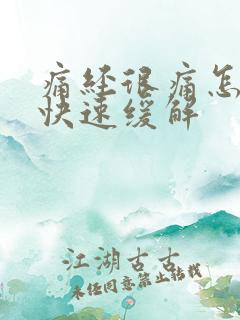 痛经很痛怎
快速缓解
江湖古古
未经同意禁止转载